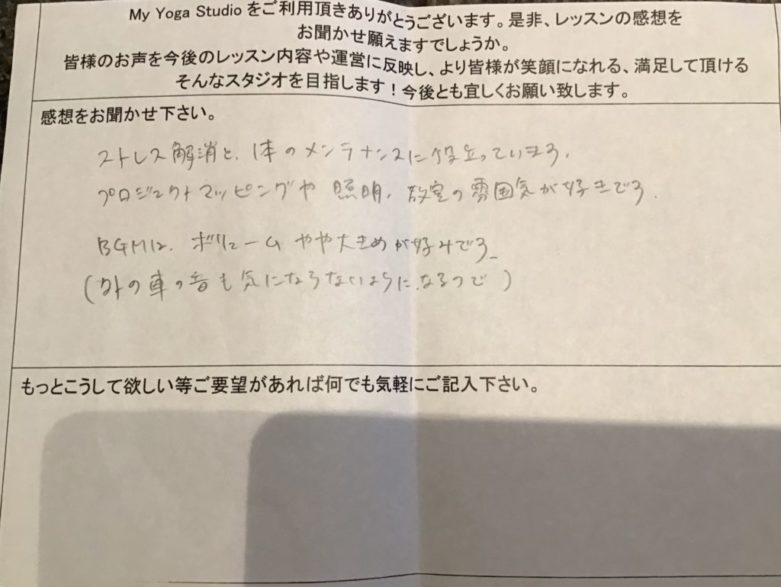 My Yoga Studio をご利用頂きありがとうございます。是非、レッスンの感想を
お聞かせ願えますでしょうか。
皆様のお声を今後のレッスン内容や運営に反映し、より皆様が笑顔になれる、満足して頂ける
そんなスタジオを目指します！今後とも宜しくお願い致します。
感想をお聞かせ下さい。
ストレス解消と、体のメンテナンスに役立っています。
プロジェクトマッピングや 照明、教室の雰囲気が好きです。
BGMは、ボリュームやや大きめが好みです。
(外の車の音も気にならないようになるので)
もっとこうして欲しい等ご要望があれば何でも気軽にご記入下さい。